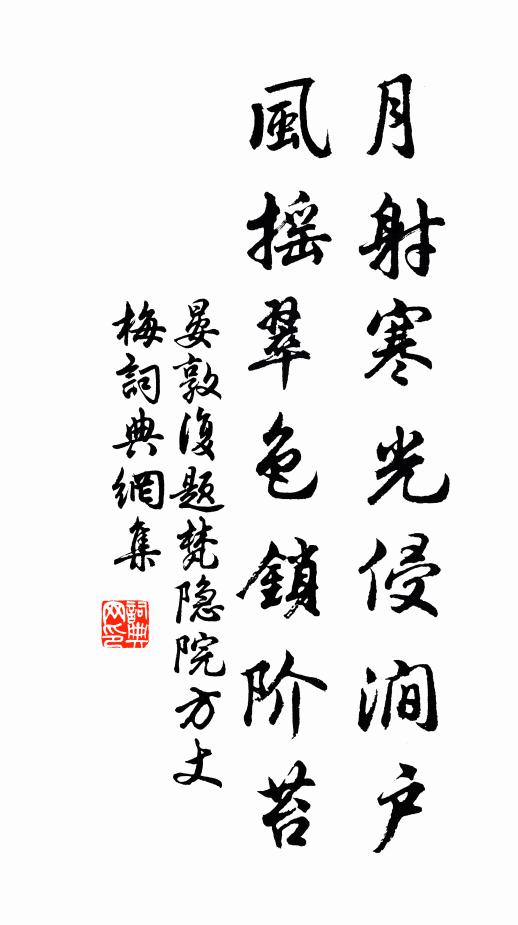 月射寒光侵涧户
風摇翠色鎖阶苔
晏敦復题梵隐院方丈
梅詞典網集
詞典网印